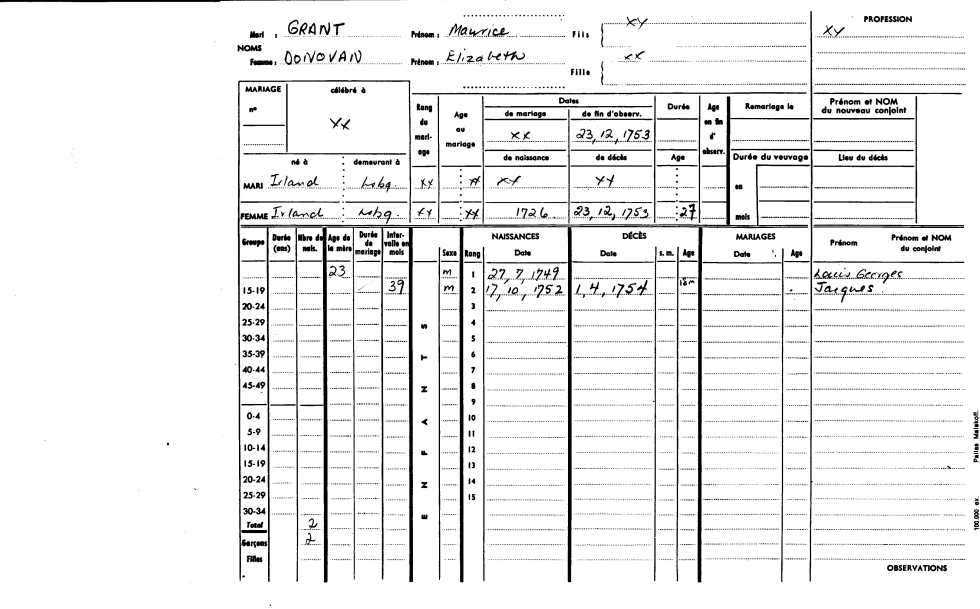 Mari : GRANT Prénom : Maurice Fils { xy PROFESSION
xy
NOMS
Femme : DONOVAN Prénom : Elizabeth Fille { xx
MARIAGE célébré à
n° xx
Rang du mariage Age au mariage Dates Durée Age en fin d'observ. Remariage le Prénom et NOM du nouveau conjoint
de mariage de fin d'observ.
xx 23, 12, 1753
né à demeurant à de naissance de décès Age Durée du veuvage Lieu du décès
MARI Irland Lsbg. xy xx xy xy en
FEMME Irland Lsbg. xy xx 1726 23, 12, 1753 27 mois
Groupe Durée (ans) Nbre de nais. Age de la mère Durée de mariage Intervalle en mois Sexe Rang NAISSANCES Date DÉCÈS Date s. m. Age MARIAGES Date Age Prénom Prénom et NOM du conjoint
23 m 1 27, 7, 1749 Louis Georges
15-19 39 m 2 17, 10, 1752 1, 4, 1754 18m Jacques
20-24 3
25-29 4
30-34 5
35-39 6
40-44 7
45-49 8
9
0-4 10
5-9 11
10-14 12
15-19 13
20-24 14
25-29 15
30-34
ENFANTS
Total 2
Garçons 2
Filles
OBSERVATIONS
100.000 ex. Pallas Malakoff.